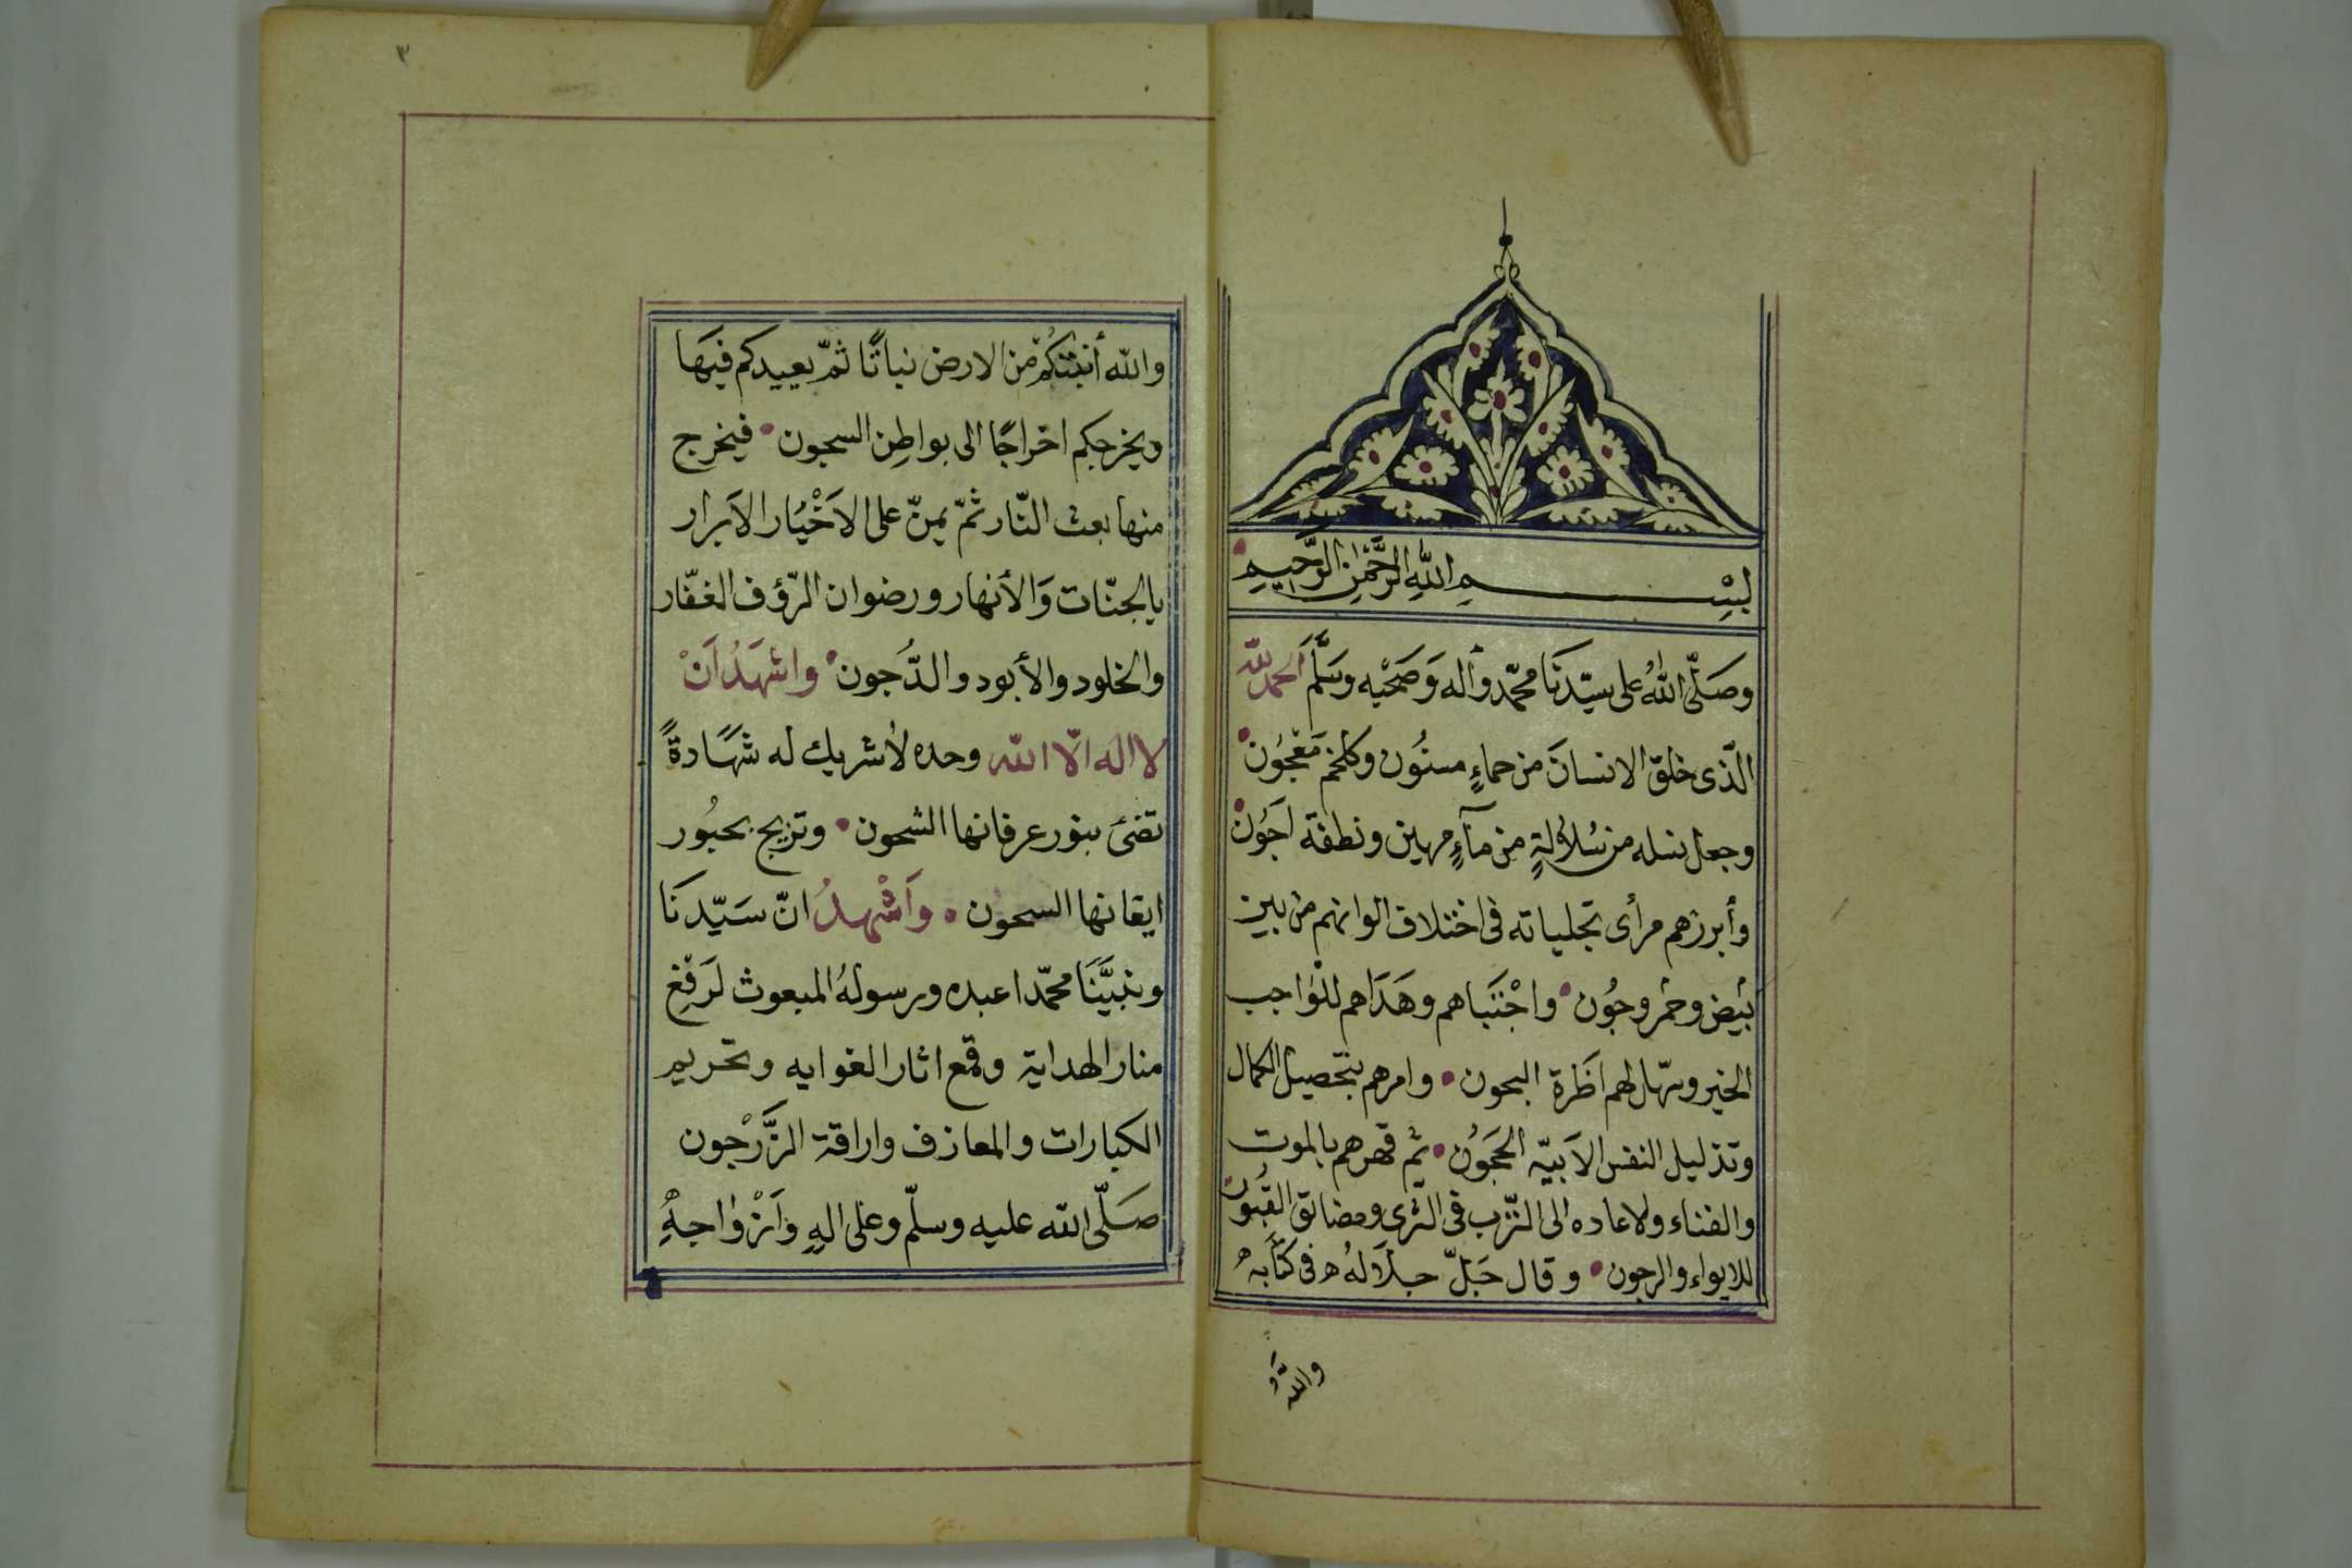 بِسْمِ اللّٰهِ الرَّحْمٰنِ الرَّحِيمِ
وصَلّى اللهُ على سيّدنَا محمّد وأله وَصَحْبِه وسَلَّمَ الحمد للّه
الّذى خلق الانسانَ من حماءٍ مسنُون وكلخم مَعْجُون
وجعل نسله من سُلاٰلةٍ من مآءٍ مهين ونطفة اَجَوُن
وأبرزهم مرأى تجلياته فى اختلاف الوانهم من بين
بَيْض وحمْر وجُون واجْتَبَاهم وهَدَاهم للنواجب
الخير وسهّل لهم اظَرة البحون وامرهم بتحصيل الكمال
وتذليل النفس الاَبيّه الحَجَوُن ثم قهرهم بالموت
والفناء ولاعاده الى التّرب فى الثرى ومضائق القبُور
للايواء والرجون وقال جَلّ جلَالهُ فى كتَابه
واللّه
٣
واللّه أنبتكُمْ من الارض نباتًا ثمّ يعييدكم فيهَا
ويخرجكم اخراجًا الى بواطِن السجون فيخرج
منها بعث النّار ثمّ يمنّ على الاَخْيَار الاَبرار
بالجنّات وَالأنهار ورضوان الرّؤف الغفّار
والخلود والأبود والدُّجون واشهَدُ اَنْ
لا اله الّا اللّه وحده لاٰشريك له شهَادةً
تضئ بنور عرفانها الشحون وتزيح بحبُور
ايقانها السحون واَشْهدُ انّ سَيّدنَا
ونبيَّنَا محمّدا عبده ورسولهُ المبعوث لرَفْعِ
منار الهداية وقمع اثار الغوايه وتحريم
الكبارات والمعازف واراقة الزَّرْجون
صَلّى اللّه عليه وسلّم وعلى الهِ واَزْواٰجهِ